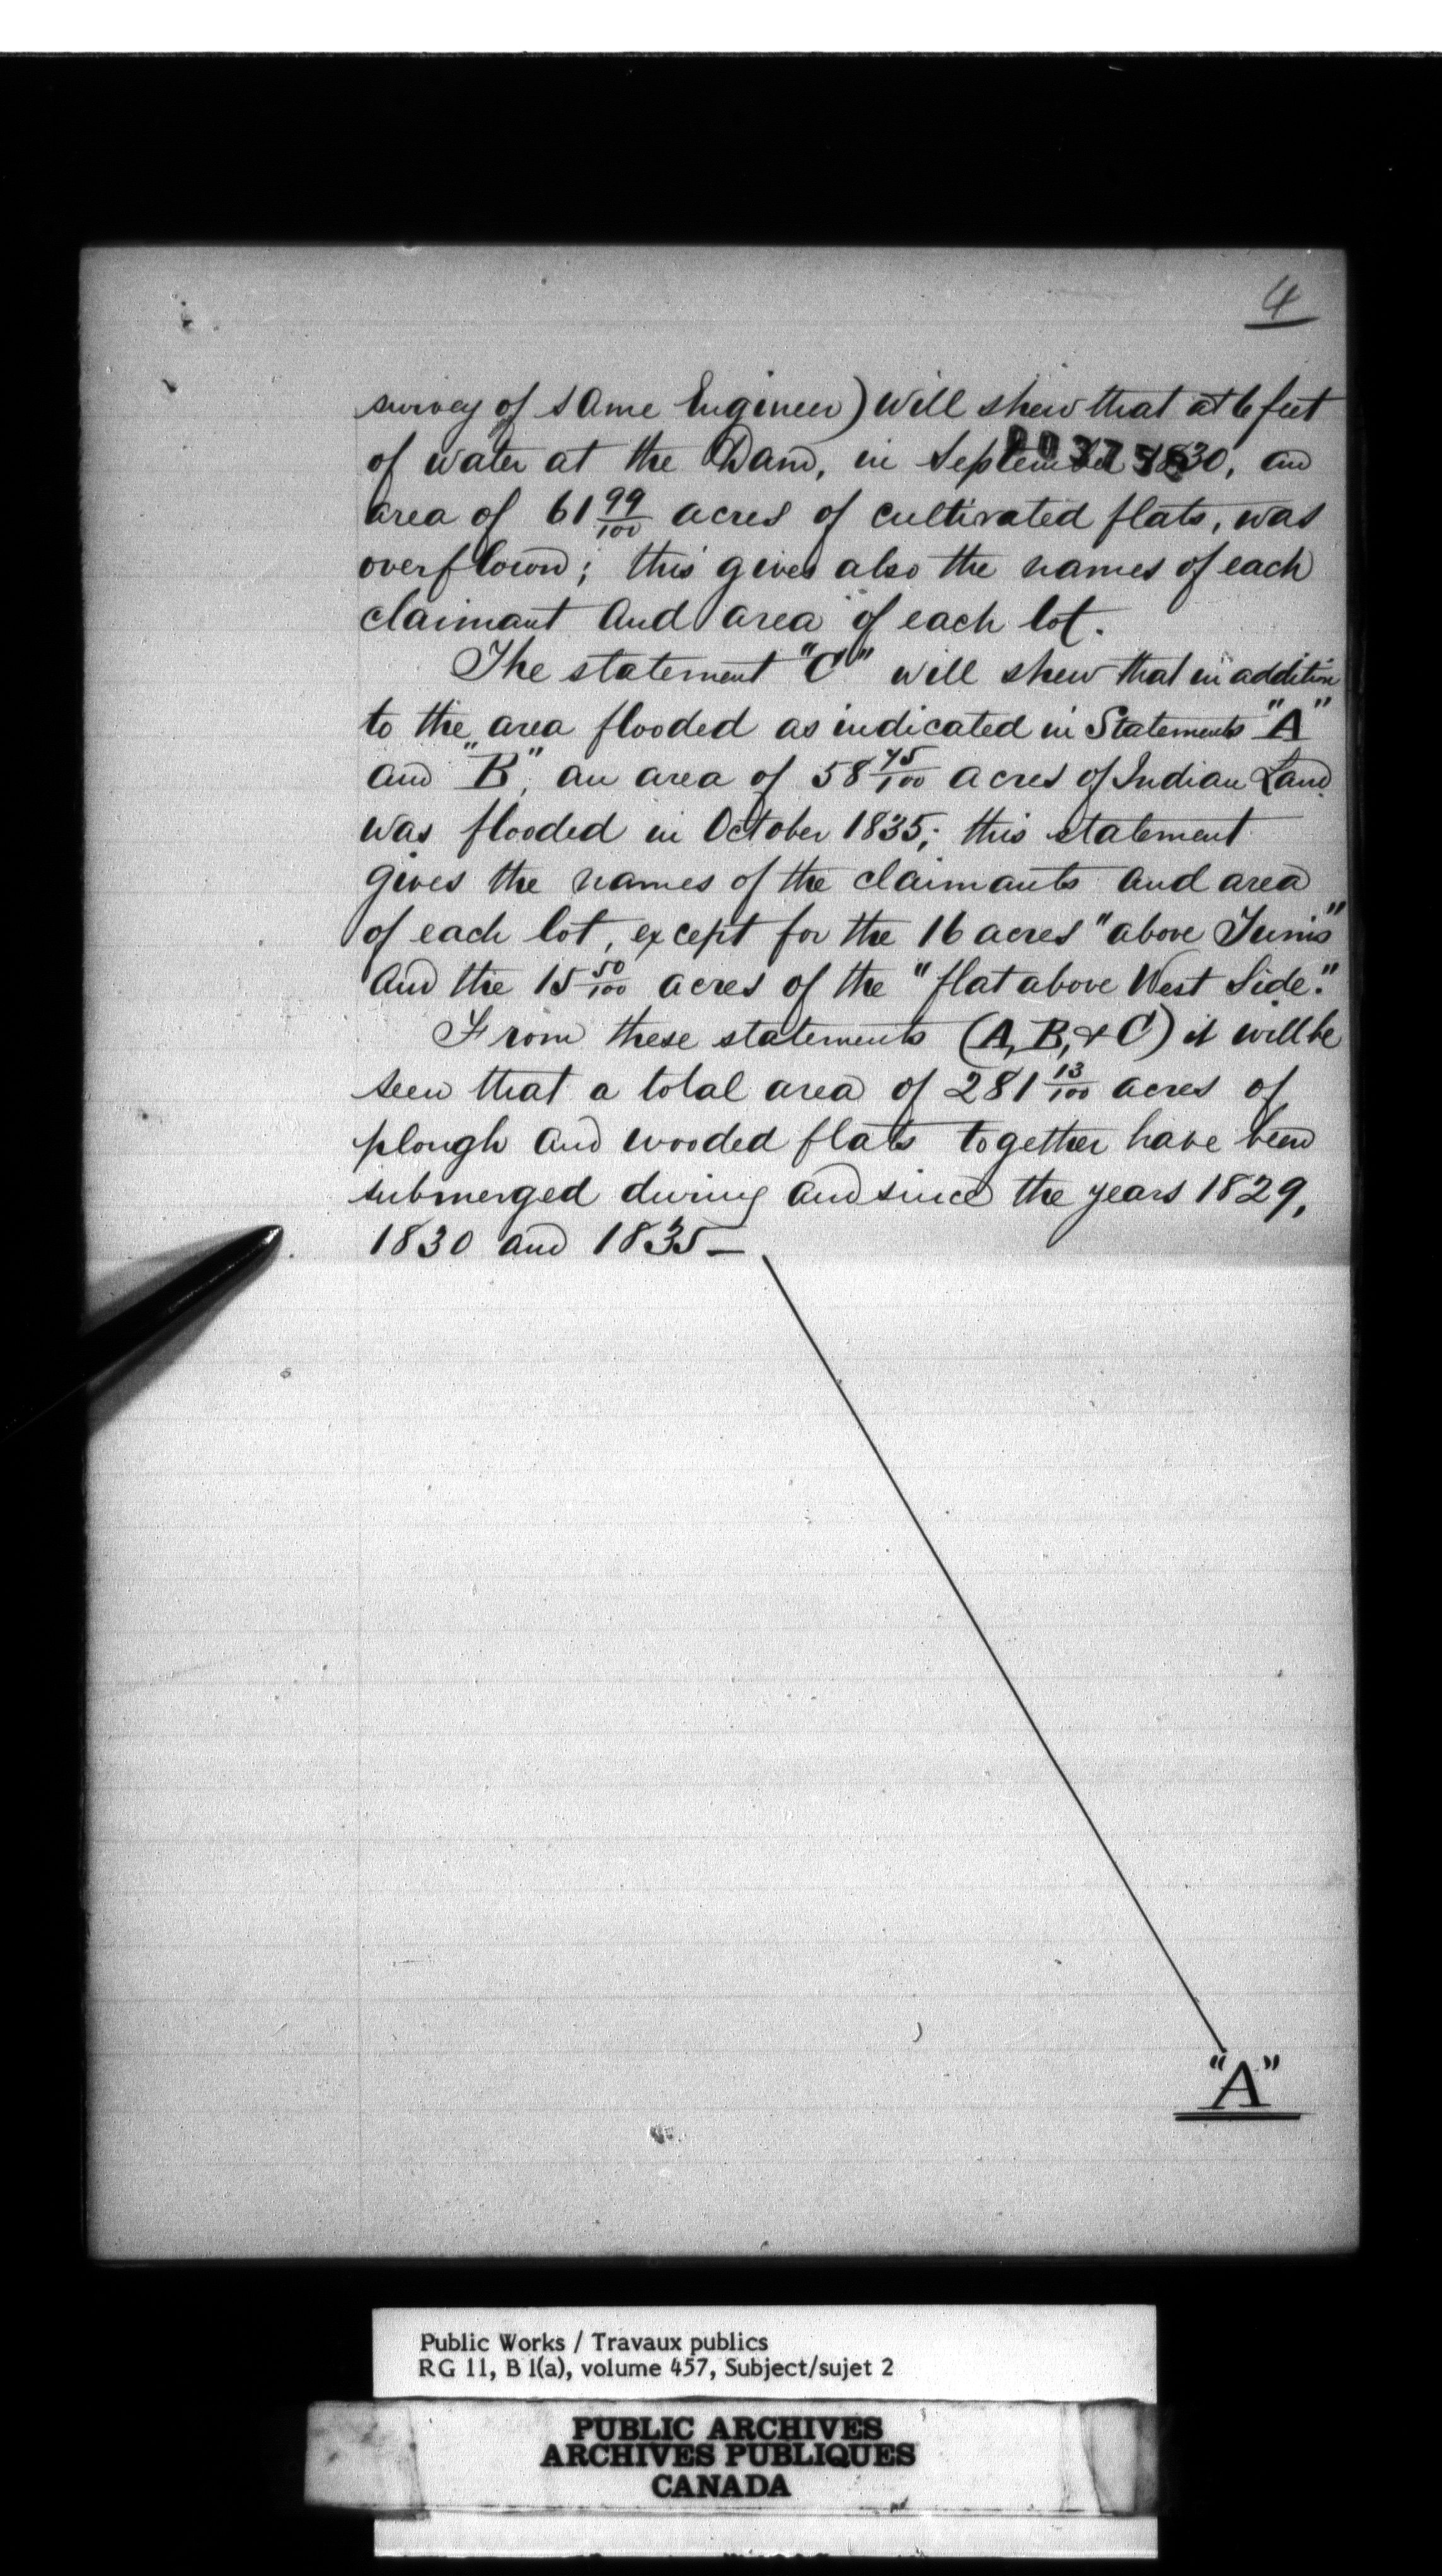 4
survey of same Engineer) will shew that at 6 feet
of water at the Dam, in September 1830, an
area of 61 99/100 acres of cultivated flats, was
overflown; this gives also the names of each
claimant and area of each lot.
The statement "C" will shew that in addition
to the area flooded as indicated in Statements "A"
and "B", an area of 58 75/100 acres of Indian Land
was flooded in October 1835; this statement
gives the names of the claimants and area
of each lot, except for the 16 acres "above
and the 15 50/100 acres of the "flat above West Side."
From these statements (A, B, & C) it will be
seen that a total area of 281 13/100 acres of
plough and wooded flats together have been
submerged during and since the years 1829,
1830 and 1835 —
"A"
Public Works / Travaux publics
RG 11, B 1(a), volume 457, Subject/sujet 2
PUBLIC ARCHIVES
ARCHIVES PUBLIQUES
CANADA